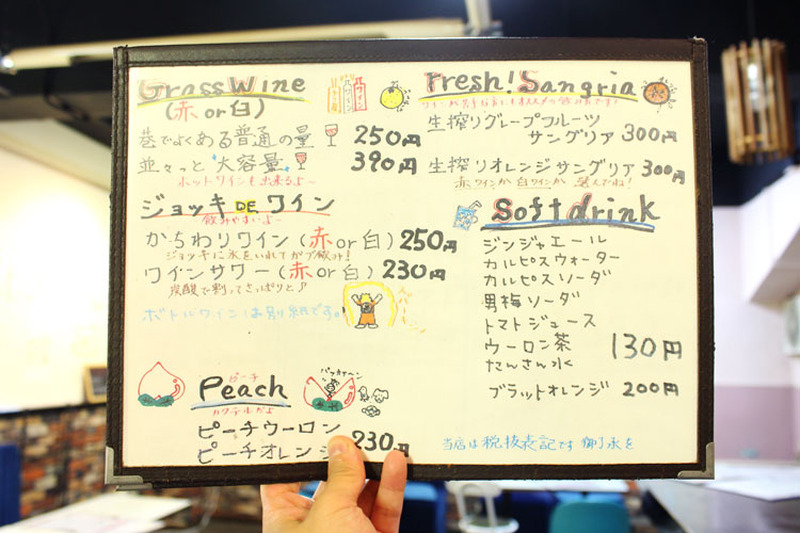 Grass Wine
(赤 or 白)
巷でよくある普通の量 250円
並々っと "大容量" 390円
ホットワインも出来るよ〜
ジョッキ DE ワイン
飲みやすいよ〜
かちわりワイン (赤 or 白) 250円
ジョッキに氷をいれてガブ飲み!
ワインサワー (赤 or 白) 230円
炭酸で割ってさっぱりと♪
ボトルワインは別紙です。
ピーチ
Peach
カクテルだよ
パッカーン
ピーチウーロン
ピーチオレンジ 230円
Fresh! Sangria
生搾りグレープフルーツ
サングリア 300円
生搾りオレンジサングリア 300円
赤ワインか白ワインか 選んでね!
Soft drink
ジンジャエール
カルピスウォーター
カルピスソーダ
男梅ソーダ
トマトジュース
ウーロン茶
たんさん水
130円
ブラットオレンジ 200円
当店は税抜表記です